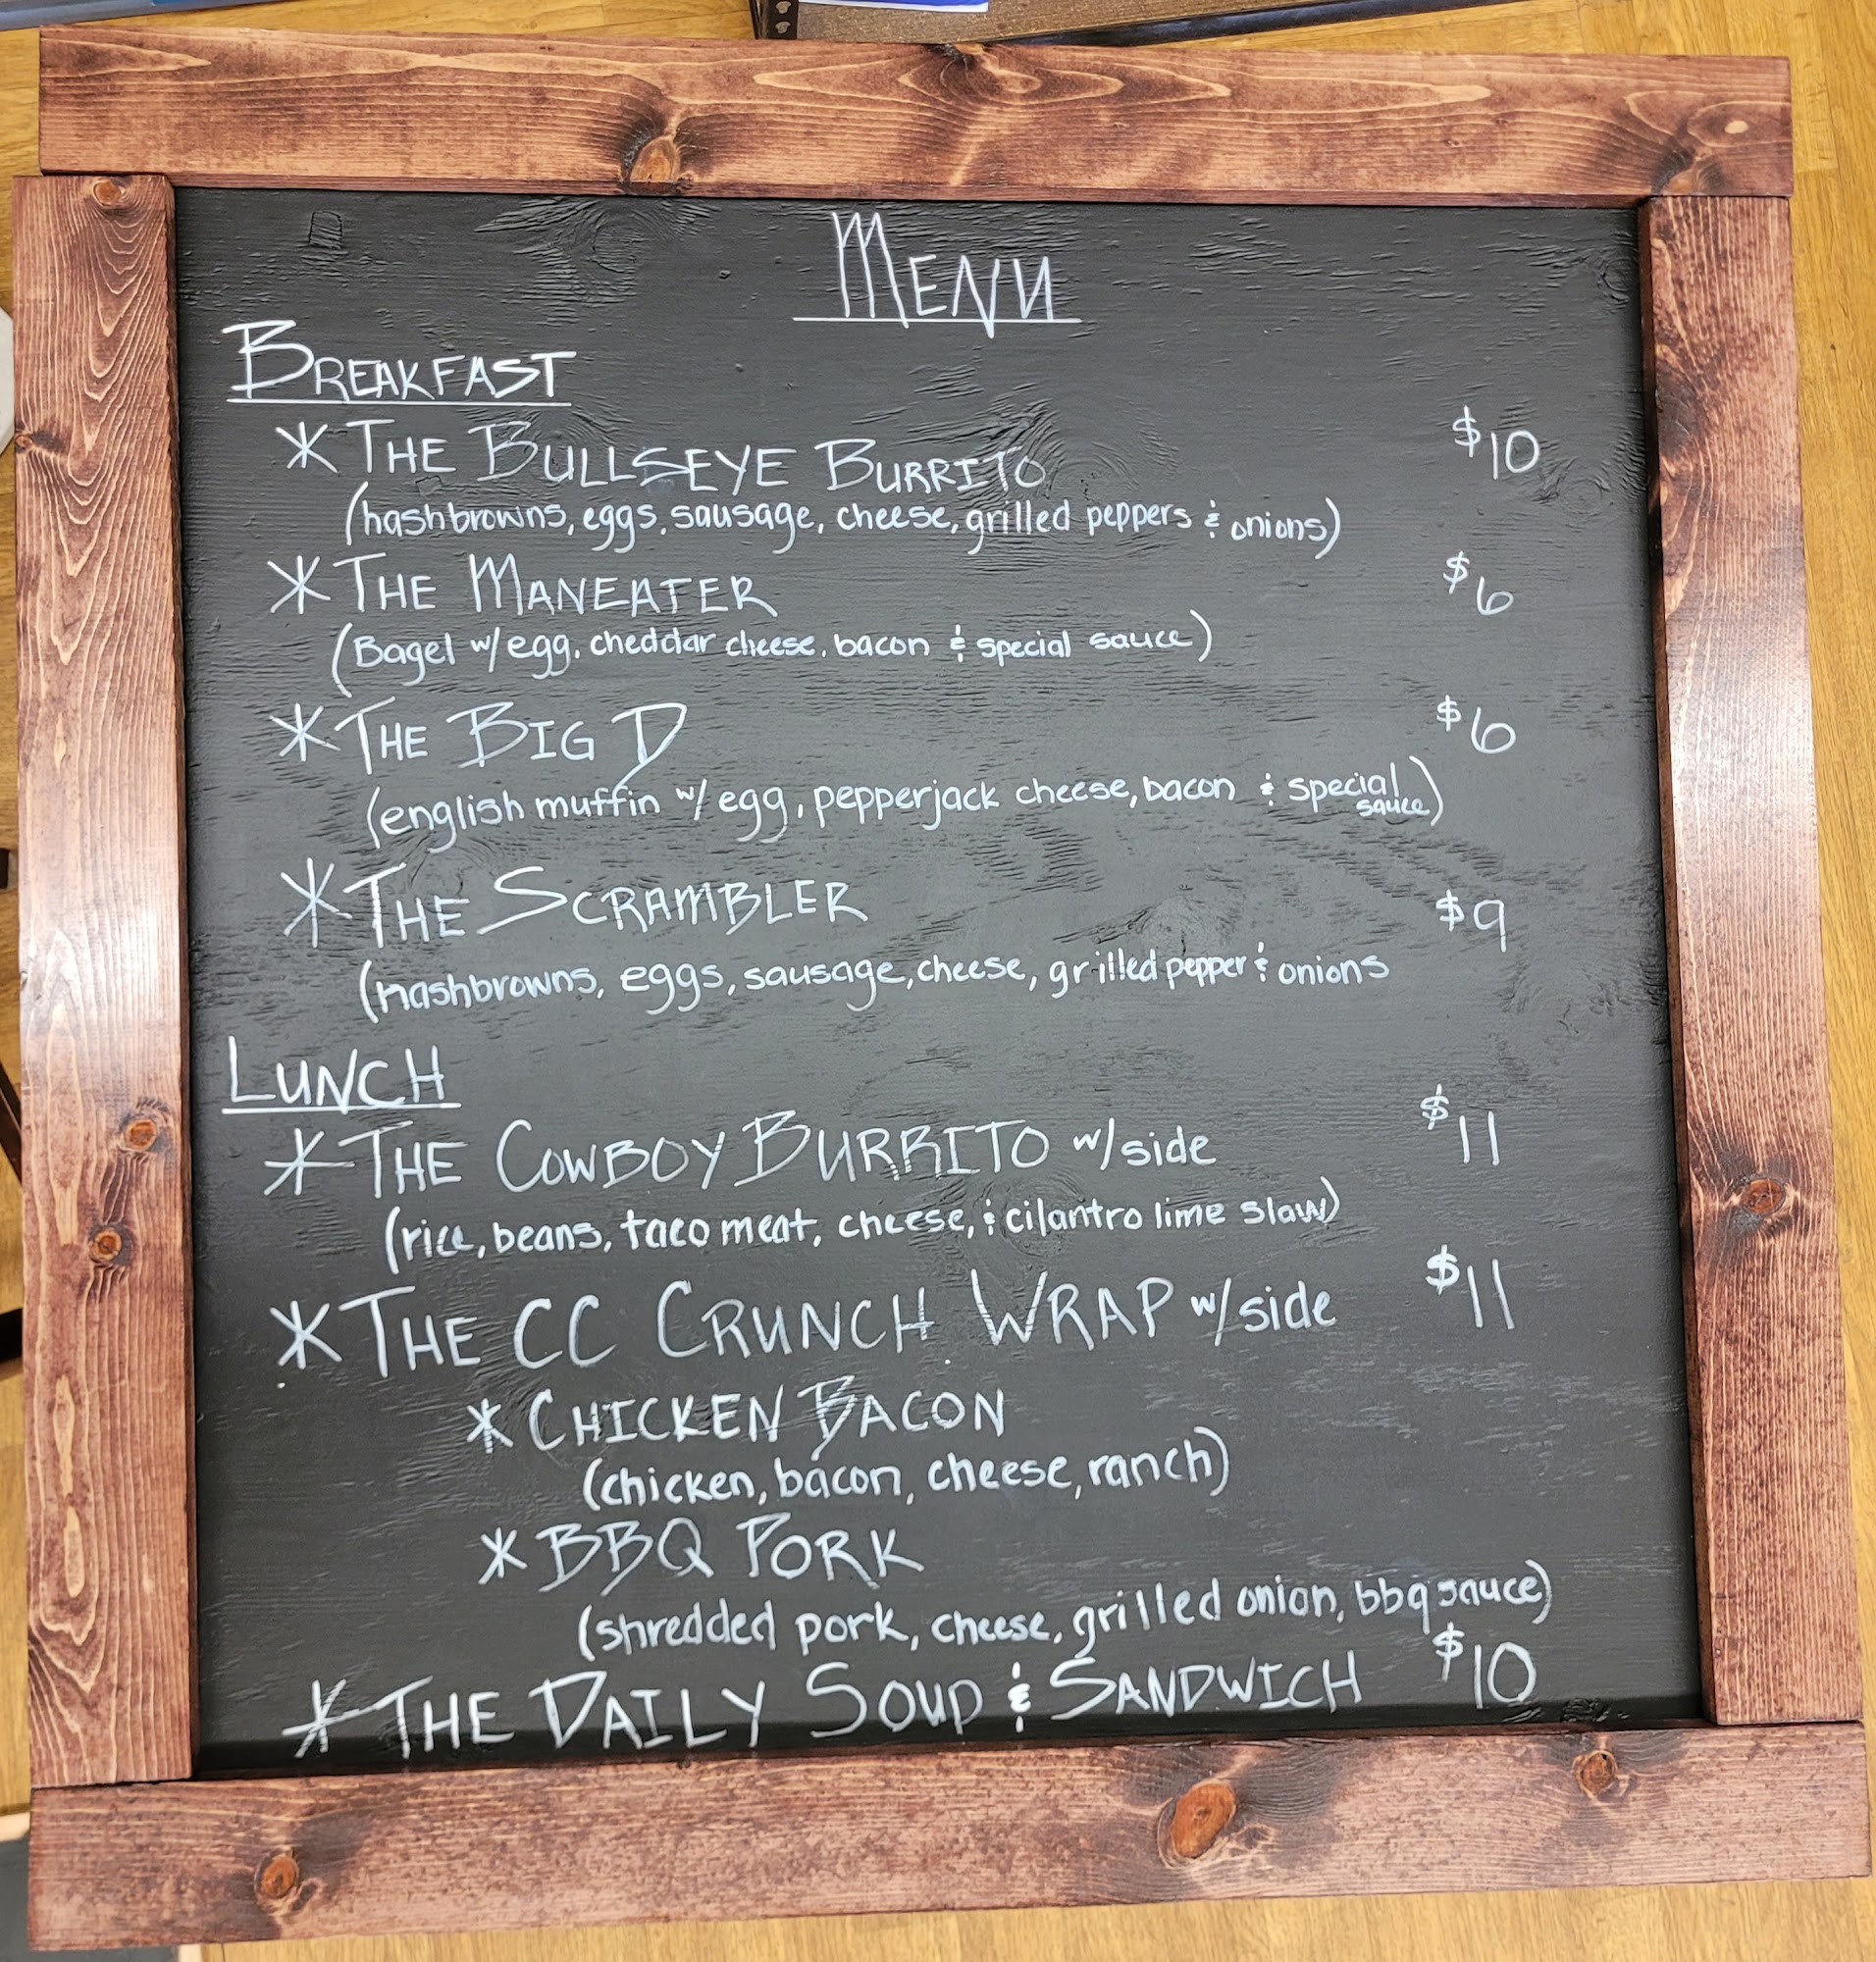 MENU
BREAKFAST
* THE BULLSEYE BURRITO $10
(hashbrowns, eggs, sausage, cheese, grilled peppers & onions)
* THE MANEATER $6
(Bagel w/ egg, cheddar cheese, bacon & special sauce)
* THE BIG D $6
(english muffin w/ egg, pepperjack cheese, bacon & special sauce)
* THE SCRAMBLER $9
(hashbrowns, eggs, sausage, cheese, grilled pepper & onions
LUNCH
* THE COWBOY BURRITO w/ side $11
(rice, beans, taco meat, cheese, & cilantro lime slaw)
* THE CC CRUNCH WRAP w/ side $11
* CHICKEN BACON
(chicken, bacon, cheese, ranch)
* BBQ PORK
(shredded pork, cheese, grilled onion, bbq sauce)
* THE DAILY SOUP & SANDWICH $10